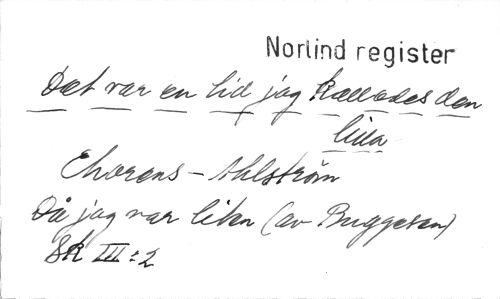 Norlind register
Det var en tid jag kallades den
lilla
Ehorens - Ahlström
Då jag var liten (av Buggesen)
SR III:2